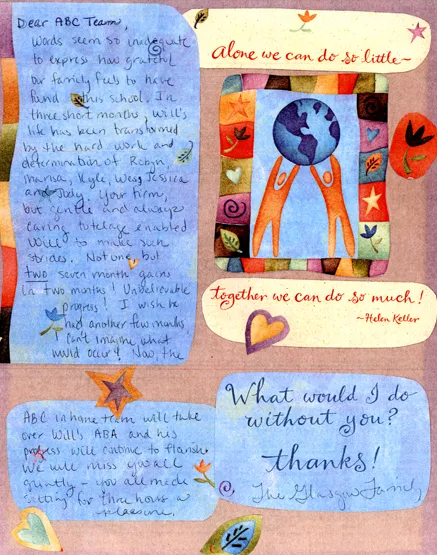 Dear ABC Team,
Words seem so inadequate
to express how grateful
our family feels to have
found this school. In
three short months, Will's
life has been transformed
by the hard work and
determination of Robyn,
Marisa, Kyle, Jessica
and Judy. Your firm,
but gentle and always
caring tutelage enabled
Will to make such
strides. Not one, but
two seven month gains
in two months! Unbelievable
progress! I wish he
had another few months
I can't imagine what
would occur! Now, the
ABC in home team will take
over Will's ABA and his
progress will continue to flourish.
We will miss you all
greatly - you all made
sitting for three hours a
pleasure.
Alone we can do so little~
together we can do so much!
~Helen Keller
What would I do
without you?
thanks!
The Glasgow Family